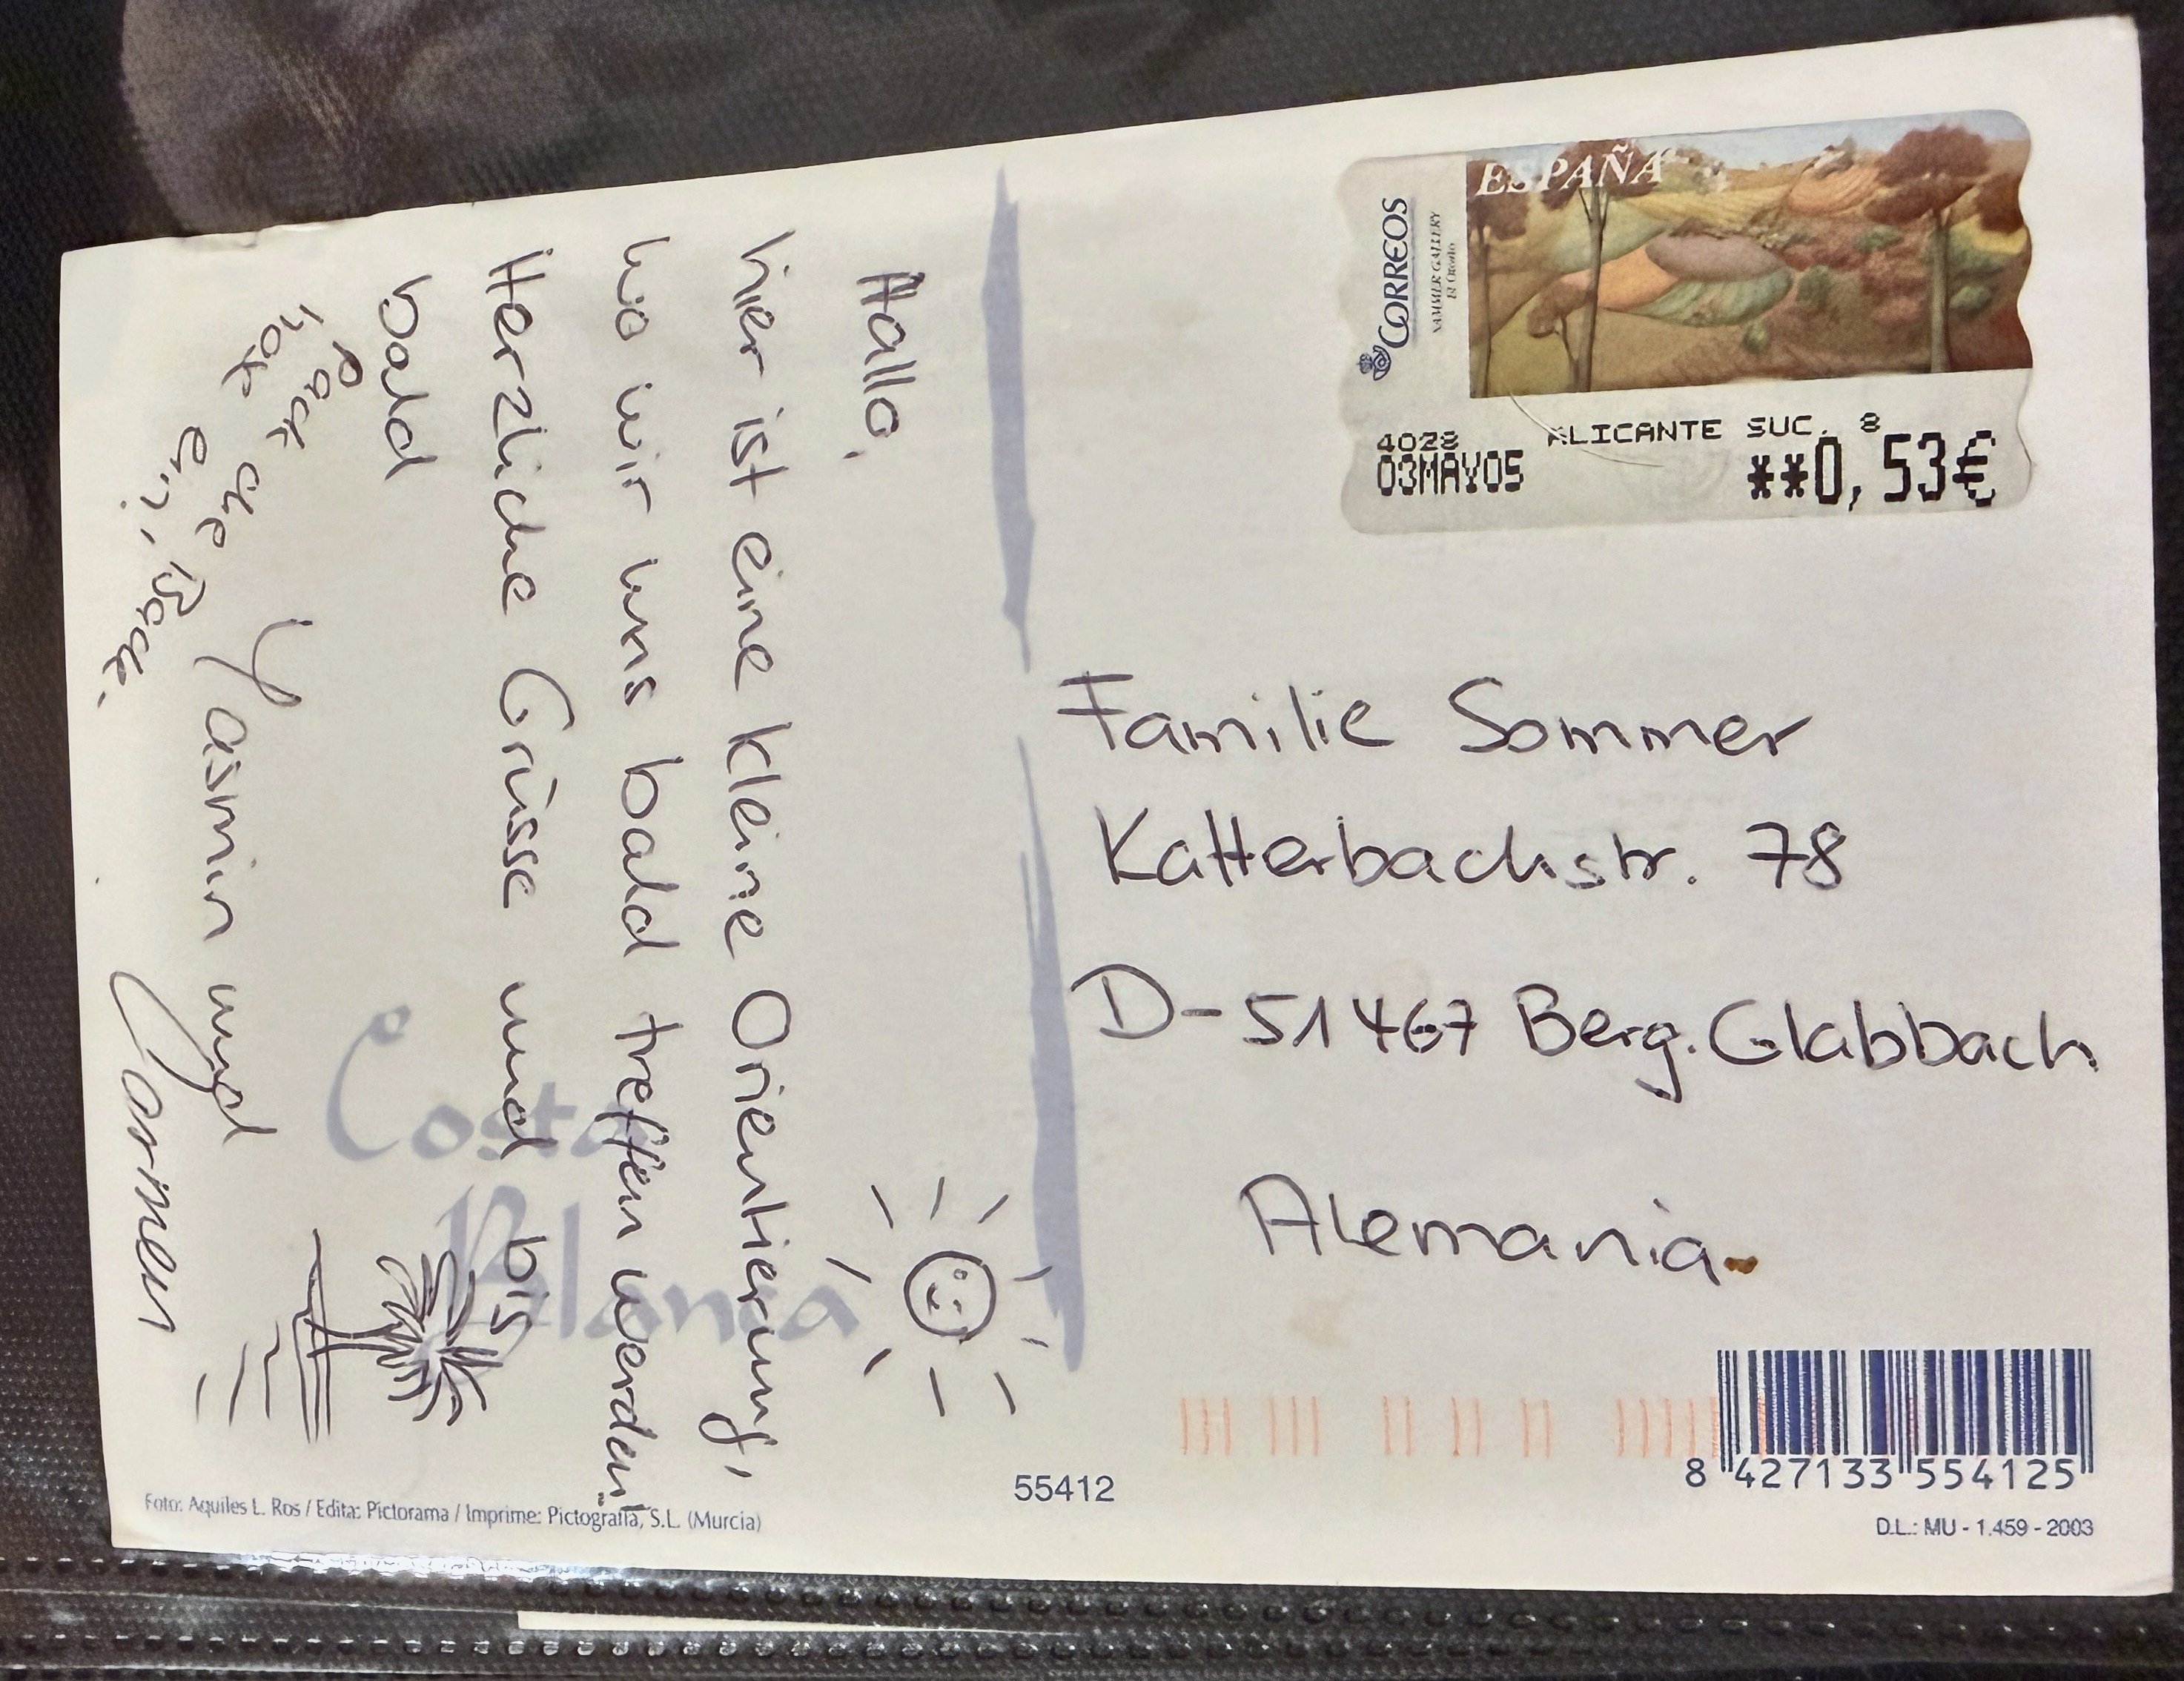 Hallo,
hier ist eine kleine Orientierung,
wo wir uns bald treffen werden!
Herzliche Grüsse und bis
bald
Yasmin und
Carmen
Pack die Bade
hose ein,
Costa
Blanca
CORREOS
ESPAÑA
4028 ALICANTE SUC. 8
03MAY05 **0,53€
Familie Sommer
Katterbachstr. 78
D-51467 Berg. Glabbach
Alemania
55412
8 427133 554125
D.L.: MU - 1.459 - 2003
Foto: Aquiles L. Ros / Edita: Pictorama / Imprime: Pictografía, S.L. (Murcia)